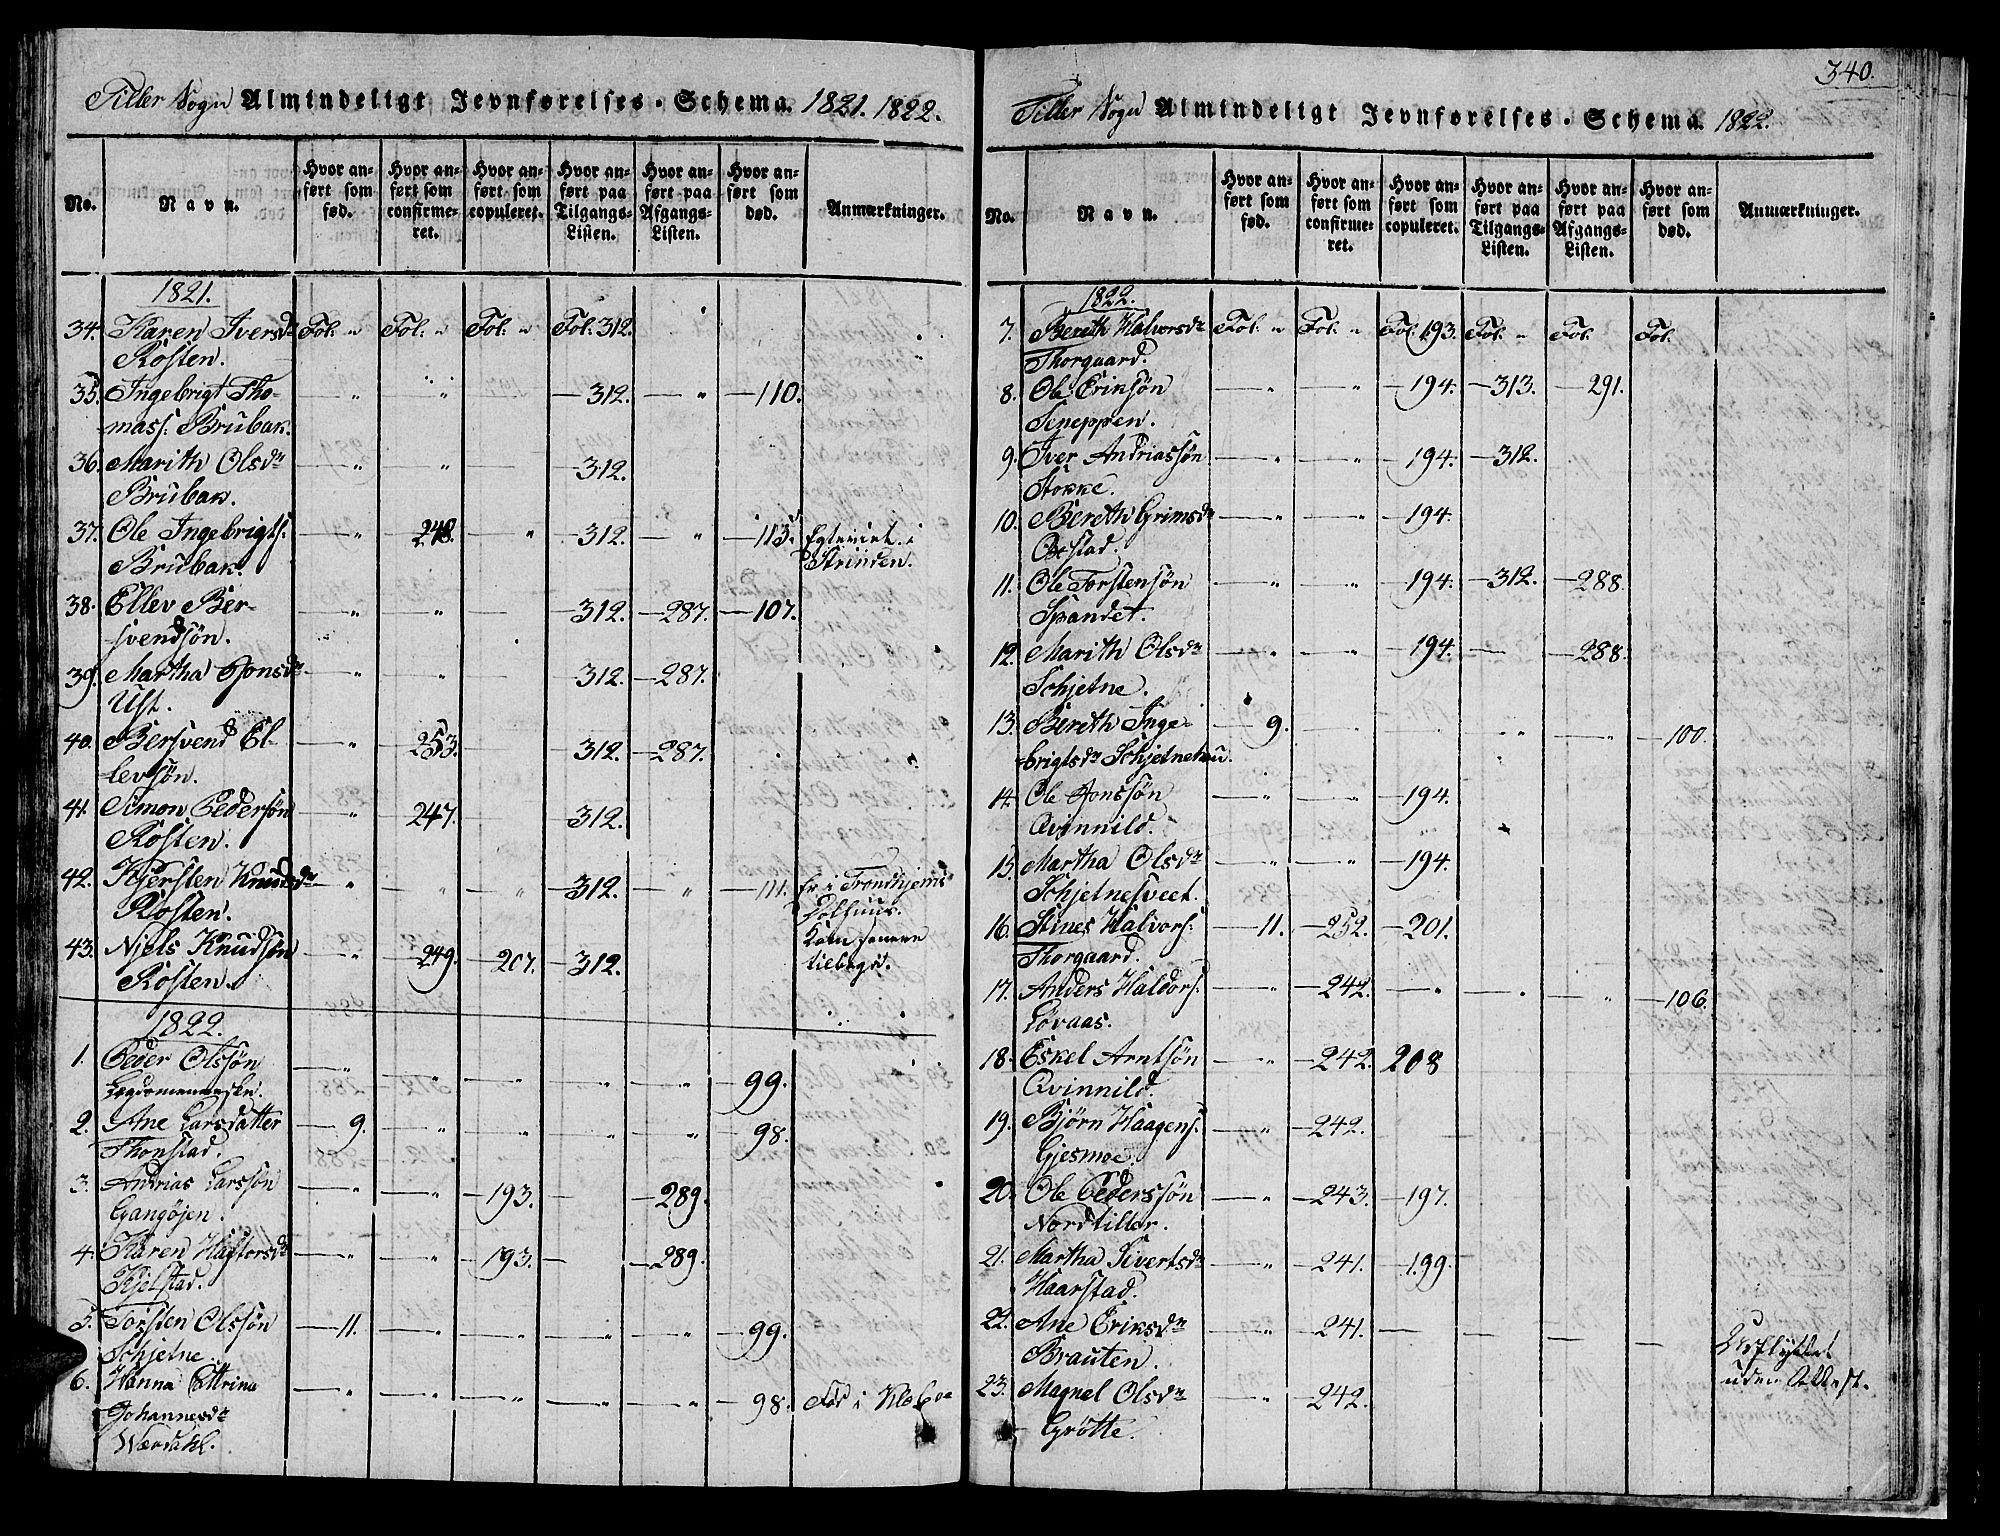 340.
Tiller Sogn Almindeligt Jevnførelses-Schema. 1821. 1822.
No. Navn. Hvor anført som fød. Hvor anført som confirmeret. Hvor anført som copuleret. Hvor anført paa Tilgangs-Listen. Hvor anført paa Afgangs-Listen. Hvor anført som død. Anmærkninger.
1821.
34. Karen Iversdr Fol: " Fol: " Fol: " Fol: 312.
Rosten.
35. Ingebrigt Tho- — " " — 312. — " — 110.
mass: Brubak.
36. Marith Olsdr — " " — 312.
Brubak.
37. Ole Ingebrigts: — " 248. " — 312. — " — 113. Exteriret i
Brubak. Strinden.
38. Ellev Ber- — " " — 312. — 287. — 107.
svendsøn.
39. Martha Jonsdr — " " 312. — 287.
Ust.
40. Bersvend El- — " — 253. 312. — 287.
levsøn.
41. Simon Pedersøn — " — 247. — 312.
Rosten.
42. Kjersten Knudsdr — " " " — 312. — " — 111. Er i Trondhjems
Rosten.
43. Niels Knudsøn — " — 249. — 207. — 312. Kom senere
Rosten. tilbage.
1822.
1. Peder Olssøn — " — " — " — " — " — 99.
Legdemenneske.
2. Ane Larsdatter — 9. — " " " " — 98.
Thonstad.
3. Andrias Larssøn — " — " — 193. — — 289.
Gangøjen.
4. Karen Hagtorsdr — " — " — 193. — — 289.
Kjelstad.
5. Torsten Olssøn — 11. — " — " — " — " — 99.
Schjetne.
6. Hanna Cattrina — " — " — " — " — " — 98. Fød i Klebo
Johannesdr
Wærdahl.
Tiller Sogn Almindeligt Jevnførelses-Schema. 1822.
No. Navn. Hvor anført som fød. Hvor anført som confirmeret. Hvor anført som copuleret. Hvor anført paa Tilgangs-Listen. Hvor anført paa Afgangs-Listen. Hvor anført som død. Anmærkninger.
1822.
7. Bereth Halvorsdr Fol: " Fol: " Fol. 193. Fol: " Fol: Fol.
Thorgaard.
8. Ole Eriksøn — " — " — 194. — 313. — 291.
Sneppen.
9. Iver Andriassøn — " — " — 194. — 312.
Stokke.
10. Bereth Grimsdr — " — " — 194.
Østad.
11. Ole Torstensøn — " — " — 194. — 312. — 288.
Spandet.
12. Marith Olsdr — " — " — 194. — — 288.
Schjetne.
13. Bereth Inge- — 9. — " " " " — 100.
brigtsdr Schjetnehau.
14. Ole Jonssøn — " — " — 194.
Qvinnild.
15. Martha Olsdr — " — " — 194.
Schjetnesveet.
16. Stines Halvors: — 11. — 252. — 201.
Thorgaard.
17. Anders Haldors: — " — 242. — " — " — " — 106.
Løvaas.
18. Eskel Arntsøn — " — 242. 208
Qvinnild.
19. Bjørn Haagens: — " — 242.
Gjesmoe.
20. Ole Pederssøn — " — 243. — 197.
Nordtiller.
21. Martha Sivertsdr — " — 241. — 199.
Haarstad.
22. Ane Eriksdr — " — 241. — — — — Udflyttet
Brauten. uden Attest.
23. Magnel Olsdr — " — 242.
Grøtte.